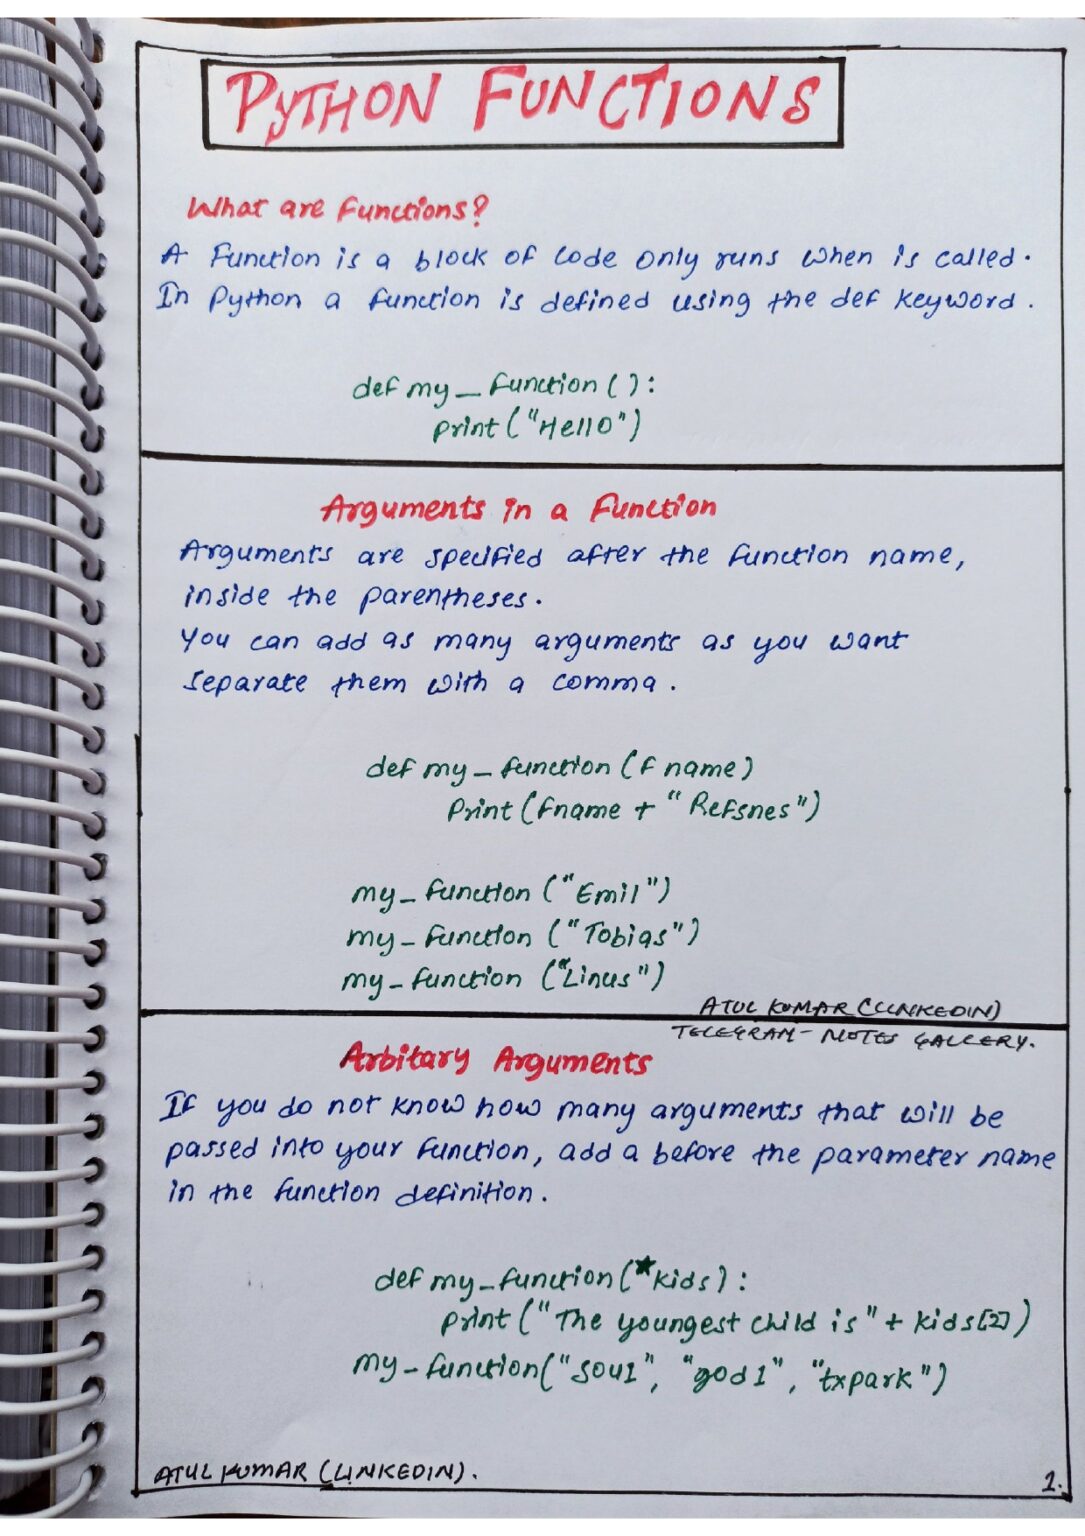 PYTHON FUNCTIONS
What are Functions?
A Function is a block of code only runs when is called.
In Python a function is defined using the def keyword.
def my_function():
print("Hello")
Arguments in a Function
Arguments are specified after the function name,
inside the parentheses.
You can add as many arguments as you want
separate them with a comma.
def my_function(fname)
Print(fname + "Refsnes")
my_function("Emil")
my_function("Tobias")
my_function("Linus")
ATUL KUMAR (LINKEDIN)
TELEGRAM - NOTES GALLERY.
Arbitary Arguments
If you do not know how many arguments that will be
passed into your function, add a before the parameter name
in the function definition.
def my_function(*kids):
print("The youngest child is" + kids[2])
my_function("soul", "god1", "txpark")
ATUL KUMAR (LINKEDIN).
1.